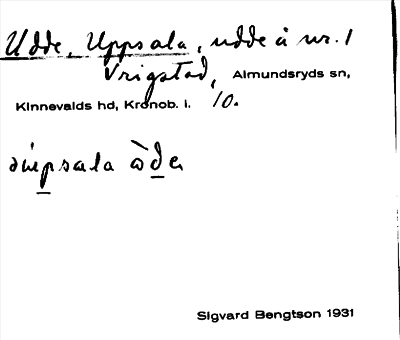 Udde, Uppsala, udde å nr. 1
Vrigstad, Almundsryds sn,
Kinnevalds hd, Kronob. l. 10.
Sigvard Bengtson 1931